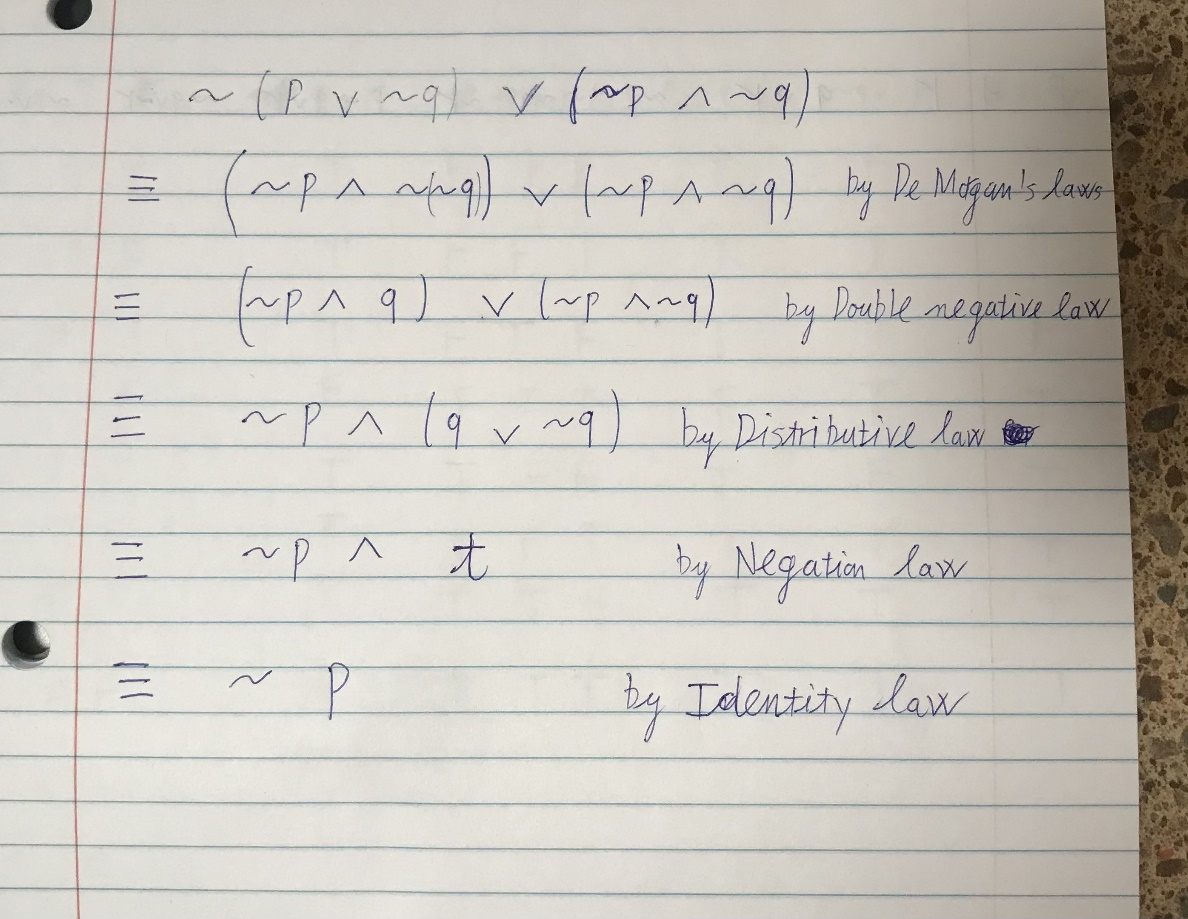 ~ (p ∨ ~q) ∨ (~p ∧ ~q)
≡ (~p ∧ ~(~q)) ∨ (~p ∧ ~q) by De Mogan's laws
≡ (~p ∧ q) ∨ (~p ∧ ~q) by Double negative law
≡ ~p ∧ (q ∨ ~q) by Distributive law
≡ ~p ∧ t by Negation law
≡ ~ p by Identity law